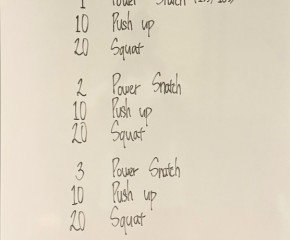 1 Power Snatch
10 Push up
20 Squat
2 Power Snatch
10 Push up
20 Squat
3 Power Snatch
10 Push up
20 Squat